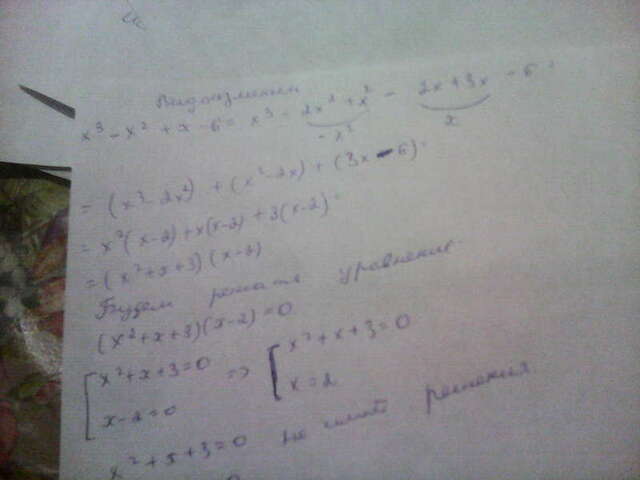 Видоизменим
x³ - x² + x - 6 = x³ - 2x² + x² - 2x + 3x - 6 =
- x² x
= (x³ - 2x²) + (x² - 2x) + (3x - 6) =
= x²(x-2) + x(x-2) + 3(x-2) =
= (x² + x + 3)(x-2)
Будем решать уравнение
(x² + x + 3)(x-2) = 0
[ x² + x + 3 = 0 => [ x² + x + 3 = 0
x - 2 = 0 x = 2
x² + x + 3 = 0 не имеет решения